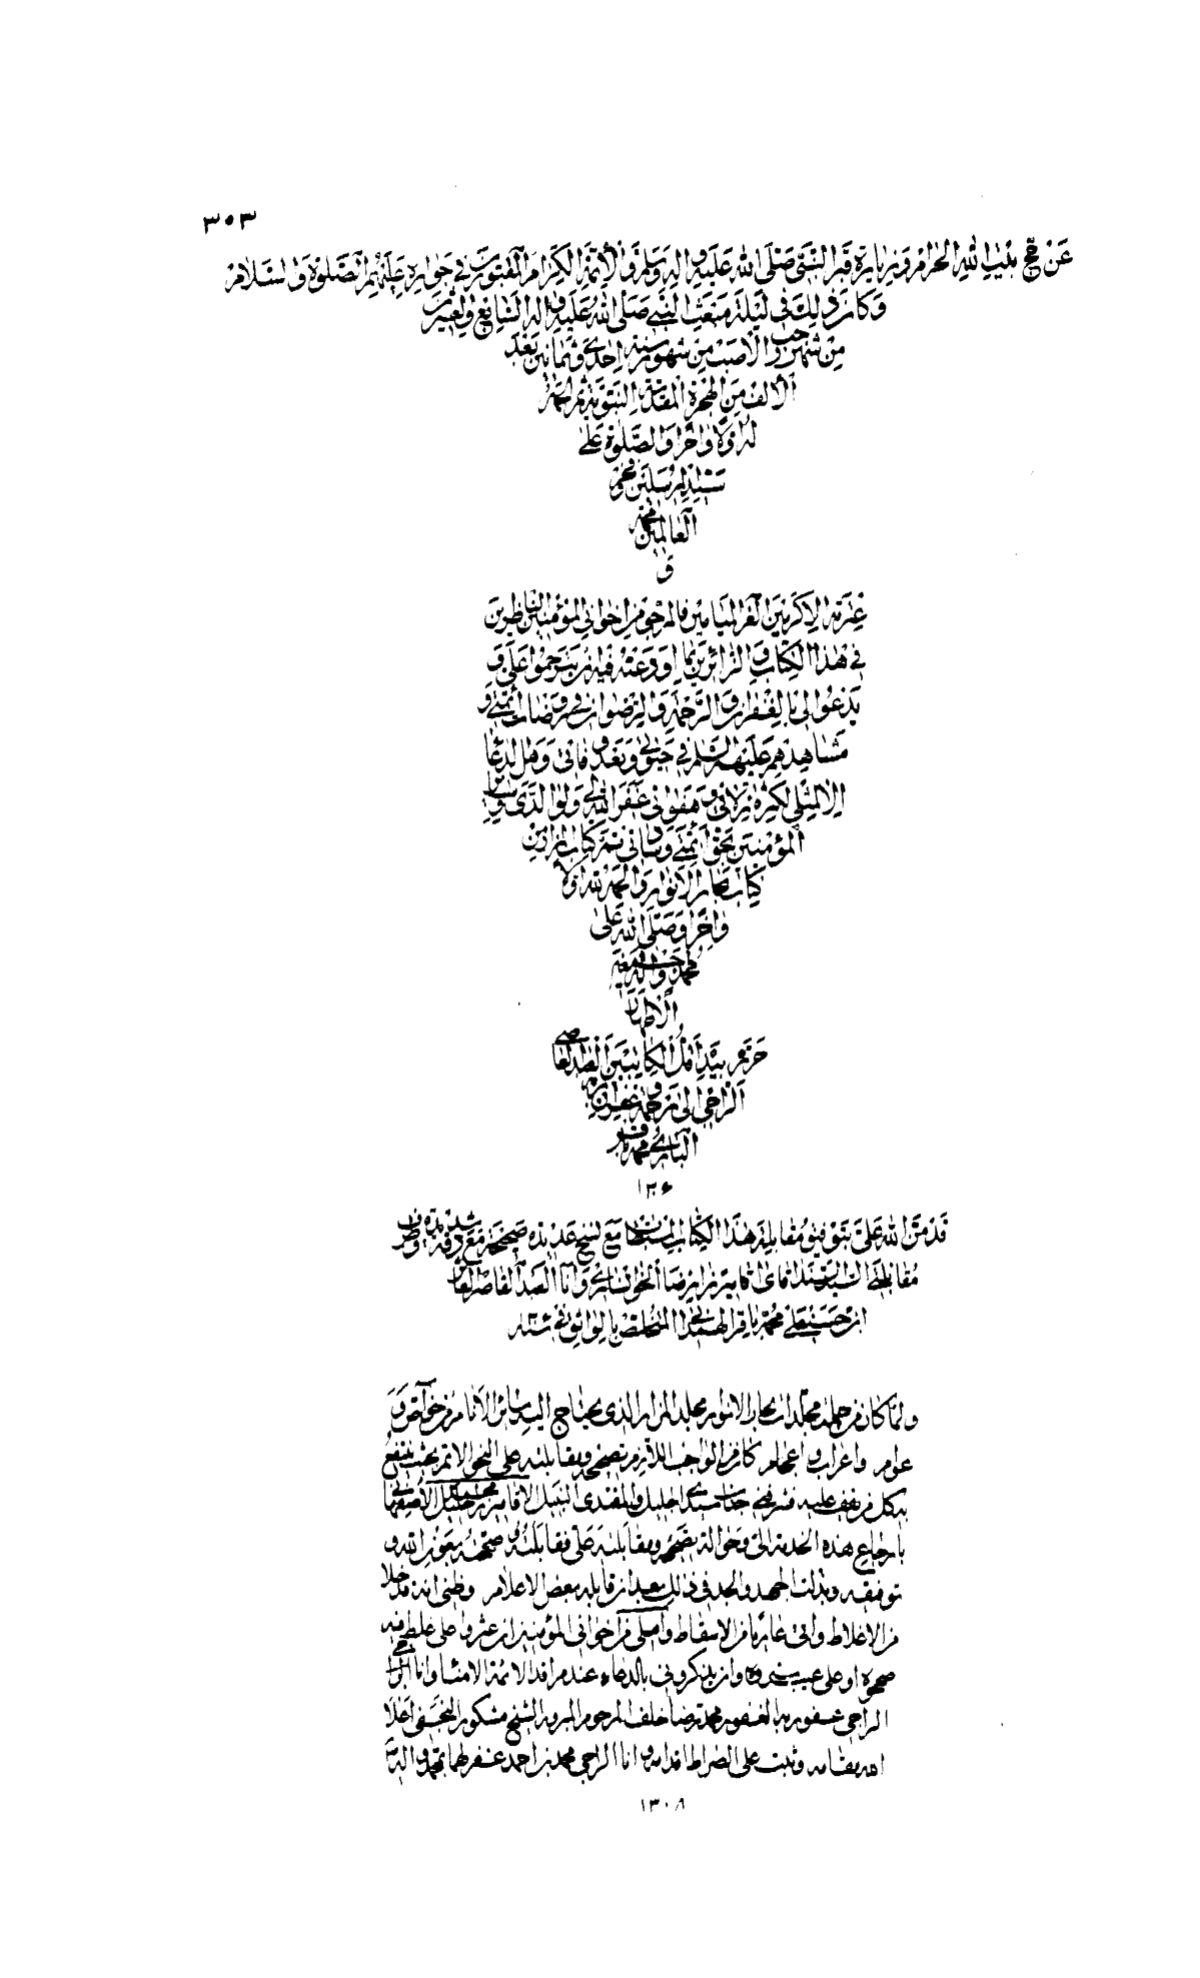 ٣٠٣
عَنْ حَجِّ بَيْتِ اللهِ الْحَرامِ وَزِيارَةِ قَبْرِ النَّبِيِّ صَلَّى اللهُ عَلَيْهِ وَالِهِ وَسَلَّمَ وَالْاَئِمَّةِ الْكِرامِ الْمَقْبُورِينَ فِي جَوارِهِ عَلَيْهِمُ الصَّلٰوةُ وَالسَّلامُ
وَكانَ ذٰلِكَ فِي لَيْلَةِ مَبْعَثِ النَّبِيِّ صَلَّى اللهُ عَلَيْهِ وَالِهِ السّابِعِ وَالْعِشْرِينَ
مِنْ شَهْرِ رَجَبِ الْاَصَبِّ مِنْ شُهُورِ سَنَةِ اِحْدى وَثَمانِينَ بَعْدَ
الْاَلْفِ مِنَ الْهِجْرَةِ الْمُقَدَّسَةِ النَّبَوِيَّةِ وَالْحَمْدُ
لِلّٰهِ اَوَّلًا وَاٰخِرًا وَالصَّلٰوةُ عَلٰى
سَيِّدِ الْمُرْسَلِينَ وَفَخْرِ
الْعالَمِينَ مُحَمَّدٍ
وَ
عِتْرَتِهِ الْاَكْرَمِينَ الْغُرِّ الْمَيامِينَ فَالْمَرْجُوُّ مِنْ اِخْوانِي الْمُؤْمِنِينَ النّاظِرِينَ
فِي هٰذَا الْكِتابِ وَالزّائِرِينَ بِما اَوْدَعْتُهُ فِيهِ اَنْ يَتَرَحَّمُوا عَلَيَّ وَ
يَدْعُوا لِي بِالْغُفْرانِ وَالرَّحْمَةِ وَالرِّضْوانِ فِي رَوْضاتِ اَئِمَّتِي وَ
مَشاهِدِهِمْ عَلَيْهِمُ السَّلَمُ فِي حَيٰوتِي وَبَعْدَ وَفاتِي
اَلْمُؤْمِنِينَ بِحَقِّ اَئِمَّتِي وَساداتِي تَمَّ كِتابُ الْمَزارِ مِنْ
كِتابِ بِحارِ الْاَنْوارِ وَالْحَمْدُ لِلّٰهِ اَوَّلًا
وَاٰخِرًا وَصَلَّى اللهُ عَلٰى
مُحَمَّدٍ وَالِهِ
الْاَطْهارِ
حَرَّرَهُ بِيَدِهِ اَقَلُّ الْكاتِبِينَ الْعَبْدُ الْعاصِي
الرّاجِي اِلٰى رَحْمَةِ وَغُفْرانِ رَبِّهِ
الْبارِي
قَدْ مَنَّ اللهُ عَلَيَّ بِتَوْفِيقِ مُقابَلَةِ هٰذَا الْكِتابِ الْمُسْتَطابِ مَعَ نُسَخٍ عَدِيدَةٍ صَحِيحَةٍ مَعَ
وَاَنَا الْعَبْدُ الْقاصِرُ
ابْنُ حَسَنْعَلِي مُحَمَّد باقِر الْهَمَدانِي الْمُتَخَلِّصُ بِالْواثِقِ فِي سنة
ولمّا كان من جملة مجلّدات بحار الانوار مجلد المزار الذى يحتاج اليه سائر الانام من خواصّ و
عوام واعراب واعجام كان من الواجب اللازم تصحيحه ومقابلته على النحو الاتم بحيث ينتفع
به كل من يقف عليه
بارجاع هذه الخدمة الىّ وحوالة تصحيحه ومقابلته علىّ فقابلته وصحّحته بعون الله و
توفيقه وبذلت الجهد والجد فى ذلك بعد ان قابله بعض الاعلام وظنى انه قد خلا
من الاغلاط وانى من الاسقاط واملى من اخوانى المؤمنين ان عثروا على غلط فيه
صححوه او على عيب ستروه وان يذكرونى بالدعاء عند مراقد الائمة الامناء وانا
الراجى عفو ربه الغفور محمد رضا خلف المرحوم المبرور الشيخ مشكور النجفى اعلا
الله مقامه وثبت على الصراط اقدامه وانا الراجى محمد بن احمد غفر لهما بمحمد واله
١٣٠٨